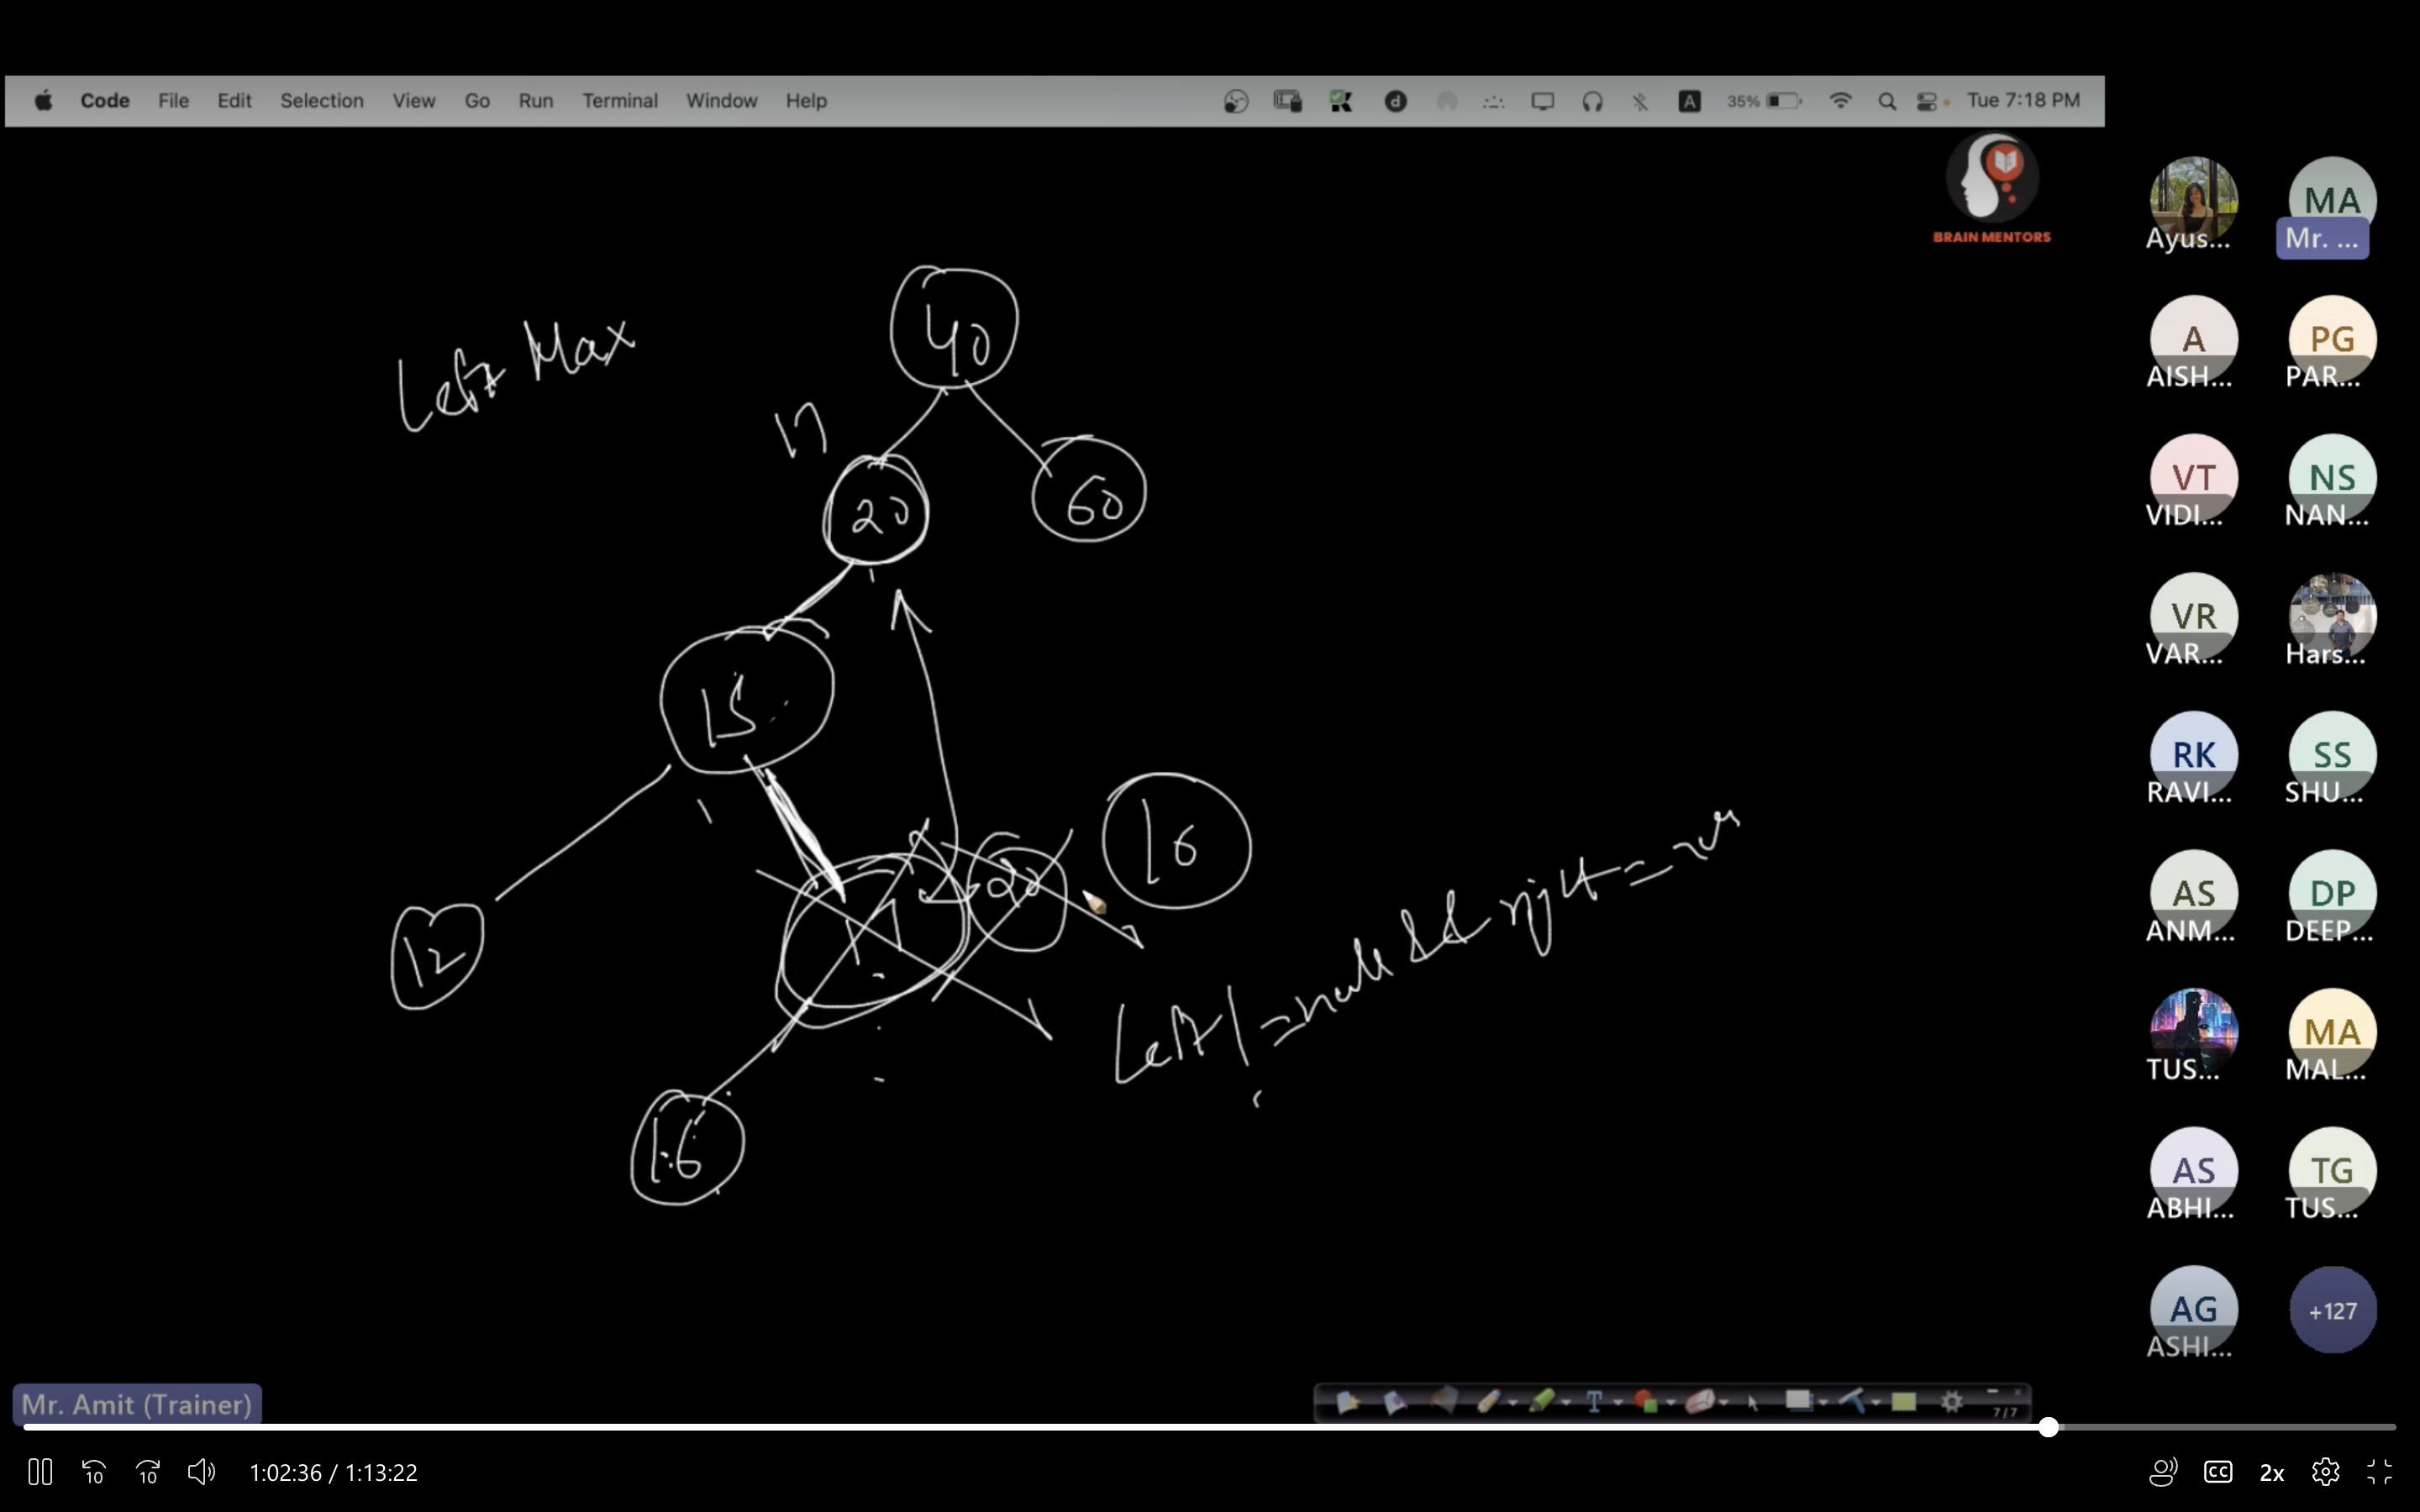 Code File Edit Selection View Go Run Terminal Window Help A 35% Tue 7:18 PM
BRAIN MENTORS
Left Max
40
17
20
60
15
16
20
17
12
Left != null && right =
16
Ayus... MA Mr. ...
A AISH... PG PAR...
VT VIDI... NS NAN...
VR VAR... Hars...
RK RAVI... SS SHU...
AS ANM... DP DEEP...
TUS... MA MAL...
AS ABHI... TG TUS...
AG ASHI... +127
Mr. Amit (Trainer)
T 7/7
10 10 1:02:36 / 1:13:22 CC 2x